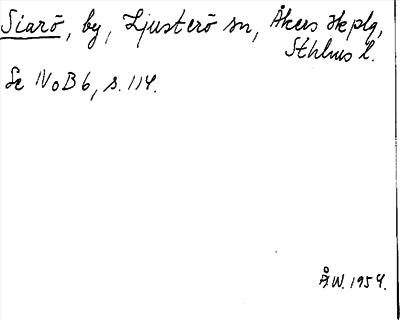 Siarö, by, Ljusterö sn, Åkers skplg,
Sthlms l.
Se NoB 6, s. 114.
ÅW. 1954.